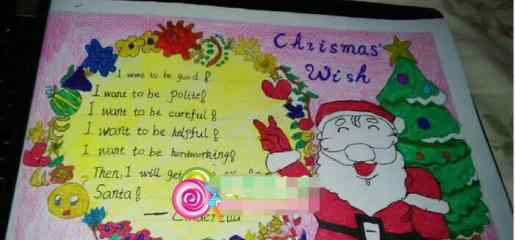 Chrismas
Wish
I want to be good!
I want to be polite!
I want to be careful!
I want to be helpful!
I want to be hardworking!
Then, I will get
Santa!
— Cinderella